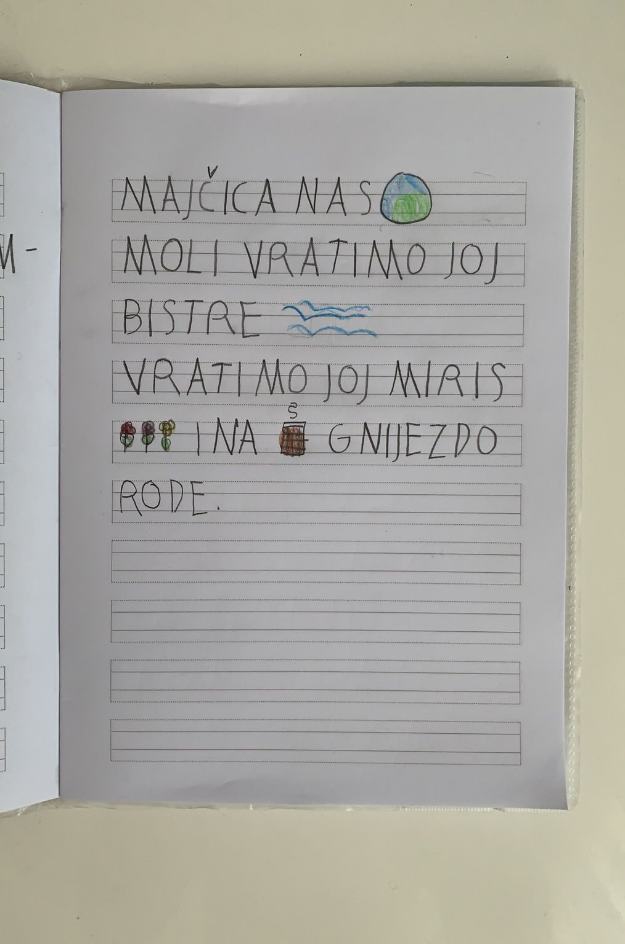 M-
MAJČICA NAS
MOLI VRATIMO JOJ
BISTRE
VRATIMO JOJ MIRIS
Š
I NA GNIJEZDO
RODE.